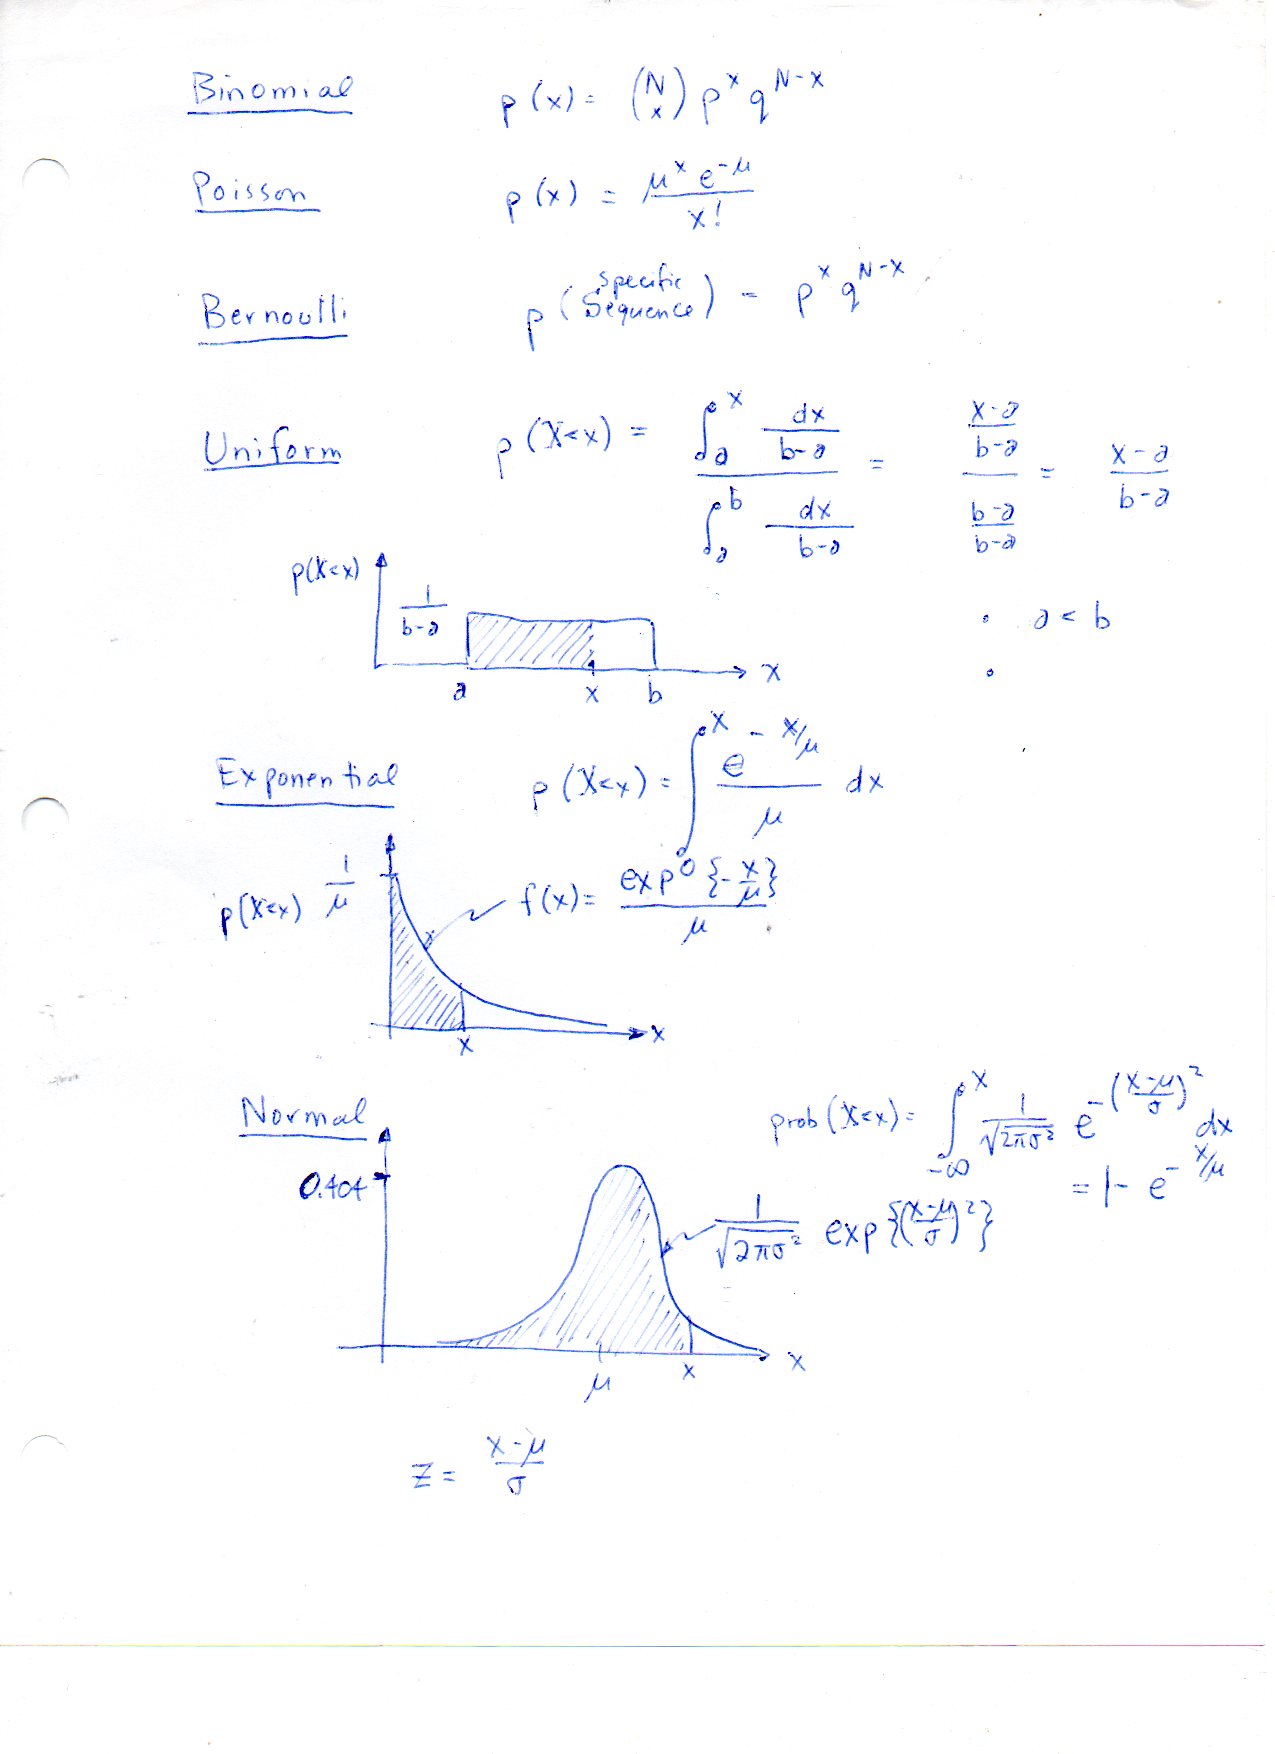 Binomial p(x) = (N x) p^x q^(N-x)
Poisson p(x) = μ^x e^-μ / x!
Bernoulli p(specific sequence) = p^x q^(N-x)
Uniform p(X<x) = ∫_a^x dx/(b-a) / ∫_a^b dx/(b-a) = (x-a)/(b-a) / (b-a)/(b-a) = (x-a)/(b-a)
p(X<x)
1/(b-a)
• a < b
•
a x b x
Exponential p(X<x) = ∫_0^x e^(-x/μ) / μ dx
p(X<x) 1/μ f(x) = exp{-x/μ} / μ
x x
Normal prob(X<x) = ∫_-∞^x 1/√(2πσ²) e^-((x-μ)/σ)² dx
= 1 - e^-x/μ
0.404
1/√(2πσ²) exp{((x-μ)/σ)²}
μ x x
Z = (x-μ)/σ